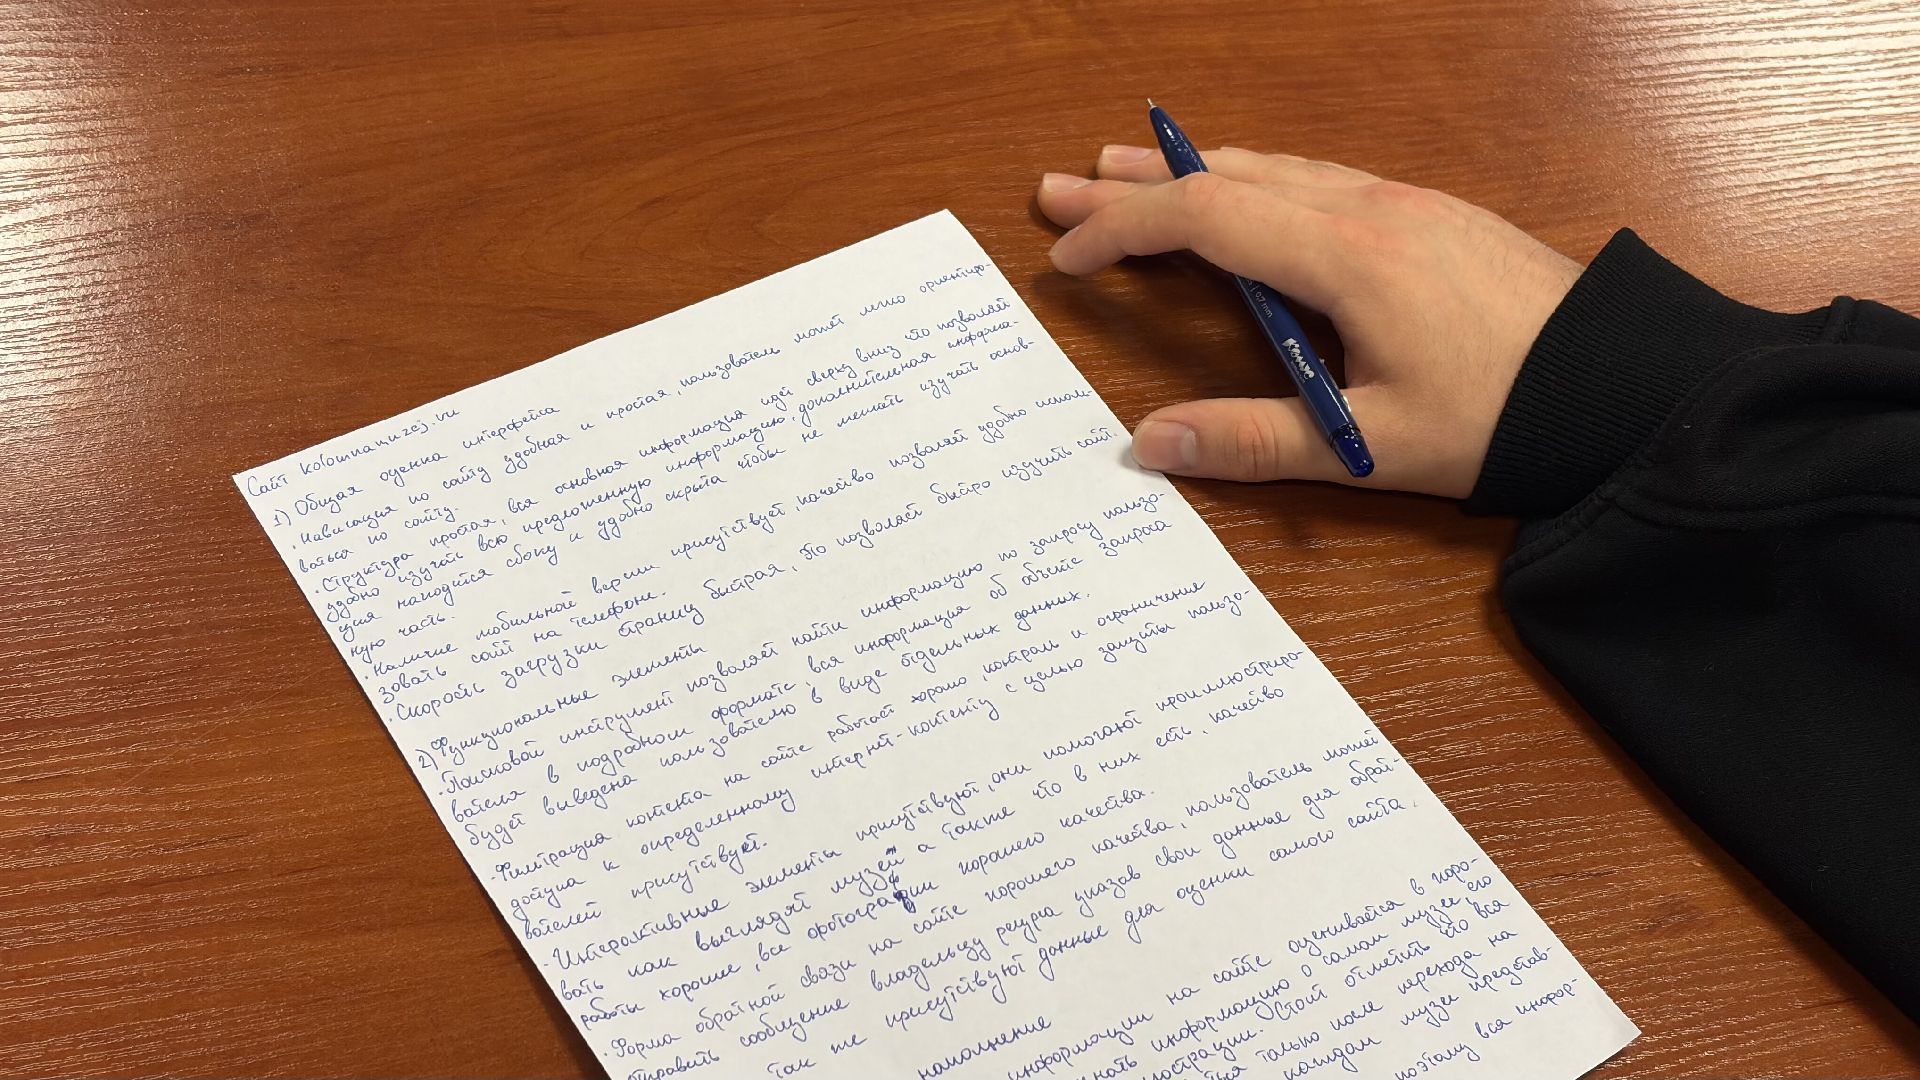 Сайт kolomnamuzej.ru
1) Общая оценка интерфейса
· Навигация по сайту удобная и простая, пользователь может легко ориентиро-
ваться по сайту.
· Структура простая, вся основная информация идёт сверху вниз что позволяет
удобно изучать всю предложенную информацию, дополнительная информа-
ция находится сбоку и удобно скрыта чтобы не мешать изучать основ-
ную часть.
· Наличие мобильной версии присутствует, качество позволяет удобно исполь-
зовать сайт на телефоне.
· Скорость загрузки страниц быстрая, это позволяет быстро изучить сайт.
2) Функциональные элементы
· Поисковой инструмент позволяет найти информацию по запросу пользо-
вателя в подробном формате, вся информация об объекте запроса
будет выведена пользователю в виде отдельных данных.
· Фильтрация контента на сайте работает хорошо, контроль и ограничение
доступа к определенному интернет-контенту с целью защиты пользо-
вателей присутствует.
· Интерактивные элементы присутствуют, они помогают проиллюстриро-
вать как выглядят музей а также что в них есть, качество
работы хорошие, все фотографии хорошего качества.
· Форма обратной связи на сайте хорошего качества, пользователь может
отправить сообщение владельцу ресурса указав свои данные для обрат-
так же присутствуют данные для оценки самого сайта.
наполнение
информации на сайте оценивается в хоро-
информацию о самом музее, его
Стоит отметить что вся
только после перехода на
каждом музее представ-
поэтому вся инфор-
Комус
0,7 mm